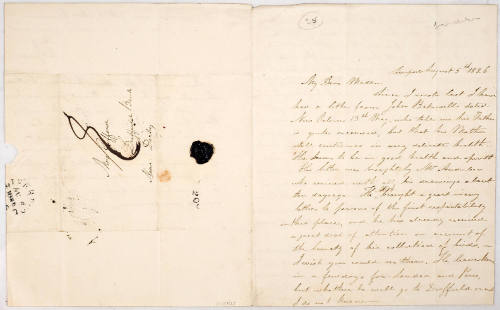 28
Liverpool August 5th 1826
My Dear Madam
Since I wrote last I have
had a letter from John Bakewell dated
New Orleans 13th May, who tells me his Father
is quite recovered, but that his Mother
still continues in very delicate health
He seems to be in good health and spirits
His letter was brought by Mr Audubon
who arrived with all his drawings about
ten days ago. He brought a great many
letters to persons of the first respectability
in this place, and he has already received
a great deal of attention on account of
the beauty of his collection of birds,
I wish you could see them. He leaves here
in a few days for London and Paris,
but whether he will go to Duffield or not
I do not know
8
Duffield Bank
near Derby